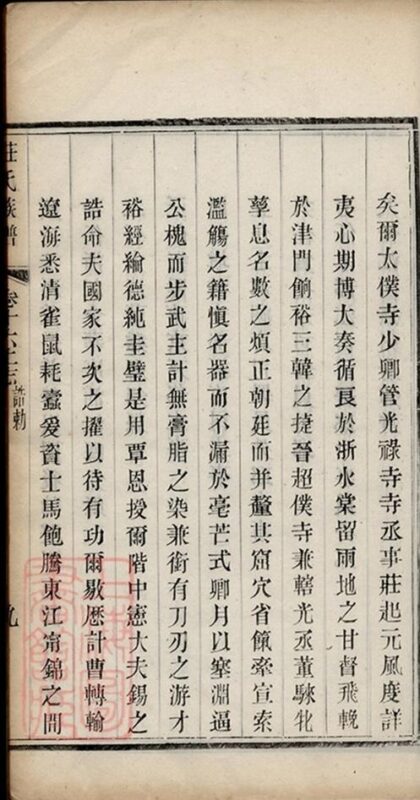 矣爾太僕寺少卿管光祿寺寺丞事莊起元風度詳
夷心期博大奏循良於浙水棠留兩地之甘督飛輓
於津門餉裕三韓之㨗晉超僕寺兼轄光丞董騋牝
孳息名數之煩正朝廷而并釐其窟穴省餼牽宣索
濫觴之籍愼名器而不漏於亳芒式卿月以塞淵逼
公槐而步武主計無膏脂之染兼銜有刀刃之游才
裕經綸德純圭璧是用覃恩授爾階中憲大夫錫之
誥命夫國家不次之擢以待有功爾敭歷計曹轉輸
遼海悉清雀鼠耗蠹爰資士馬飽騰東江甯錦之間
莊氏族譜
卷十六之三
誥勅
九